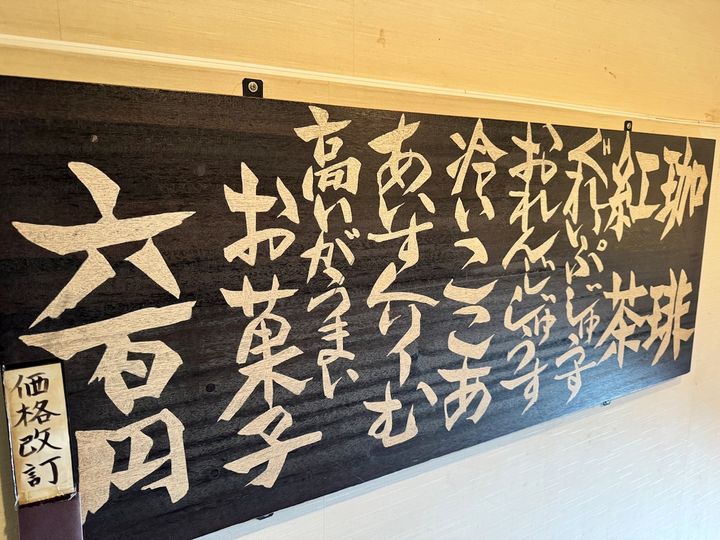 珈琲
紅茶
ぐれいぷじゅーす
おれんじじゅーす
冷いここあ
あいすくりーむ
高いがうまい
お菓子
六百円
価格改訂